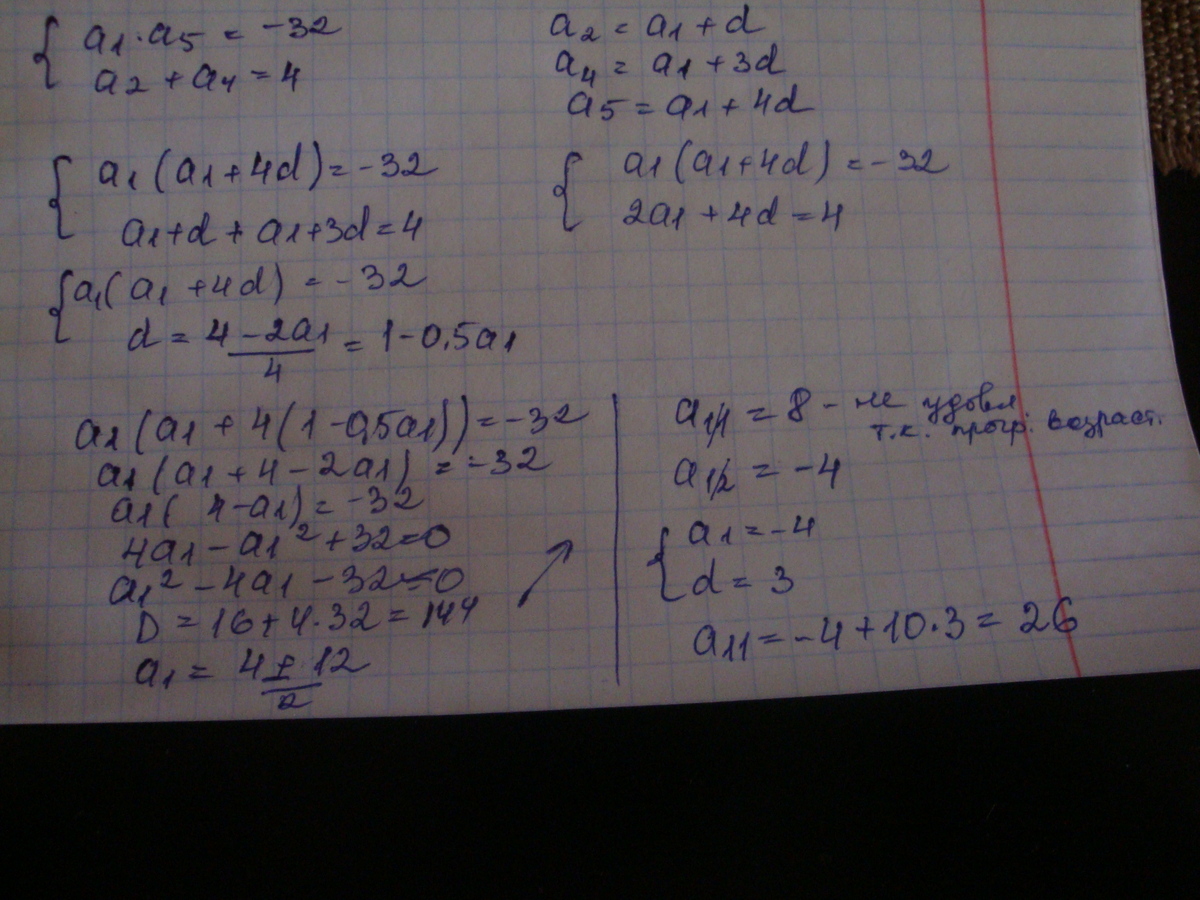 { a1·a5 = -32
a2 + a4 = 4
a2 = a1 + d
a4 = a1 + 3d
a5 = a1 + 4d
{ a1(a1+4d) = -32
a1+d+a1+3d=4
{ a1(a1+4d) = -32
2a1+4d=4
{ a1(a1+4d) = -32
d = (4-2a1)/4 = 1-0,5a1
a1(a1+4(1-0,5a1)) = -32
a1(a1+4-2a1) = -32
a1(4-a1) = -32
4a1-a1²+32=0
a1²-4a1-32=0
D=16+4·32=144
a1 = (4±12)/2
a1,1 = 8 - не удовл.
т.к. прогр. возраст.
a1,2 = -4
{ a1 = -4
d = 3
a11 = -4+10·3 = 26